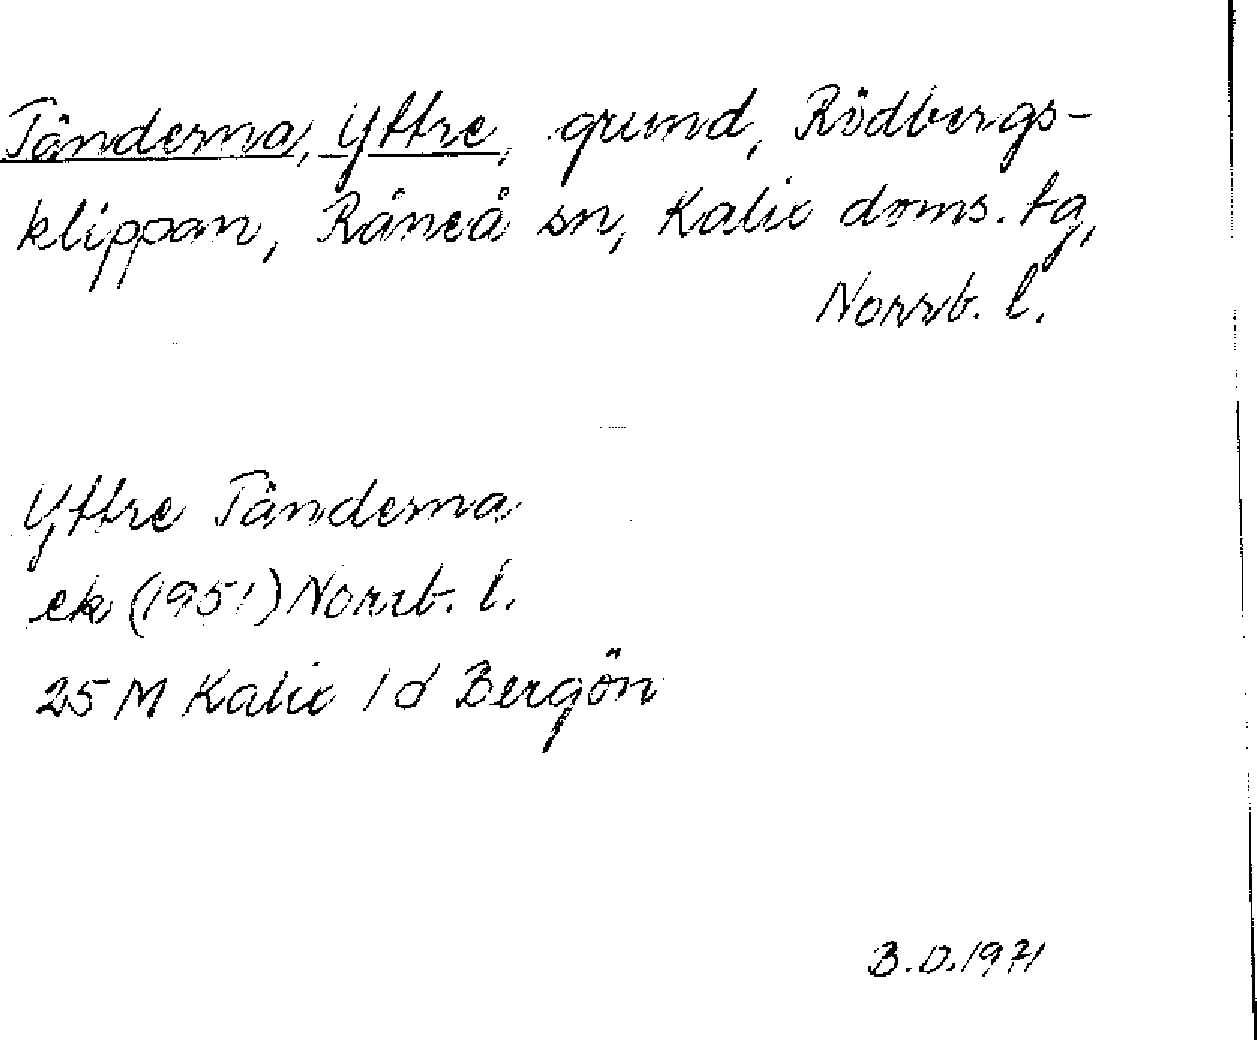 Tänderna, Yttre, grund, Rödbergs-
klippan, Råneå sn, Kalix doms. tg,
Norrb. l.
Yttre Tänderna
ek (1951) Norrb. l.
25 M Kalix 1 d Bergön
B.D. 1971